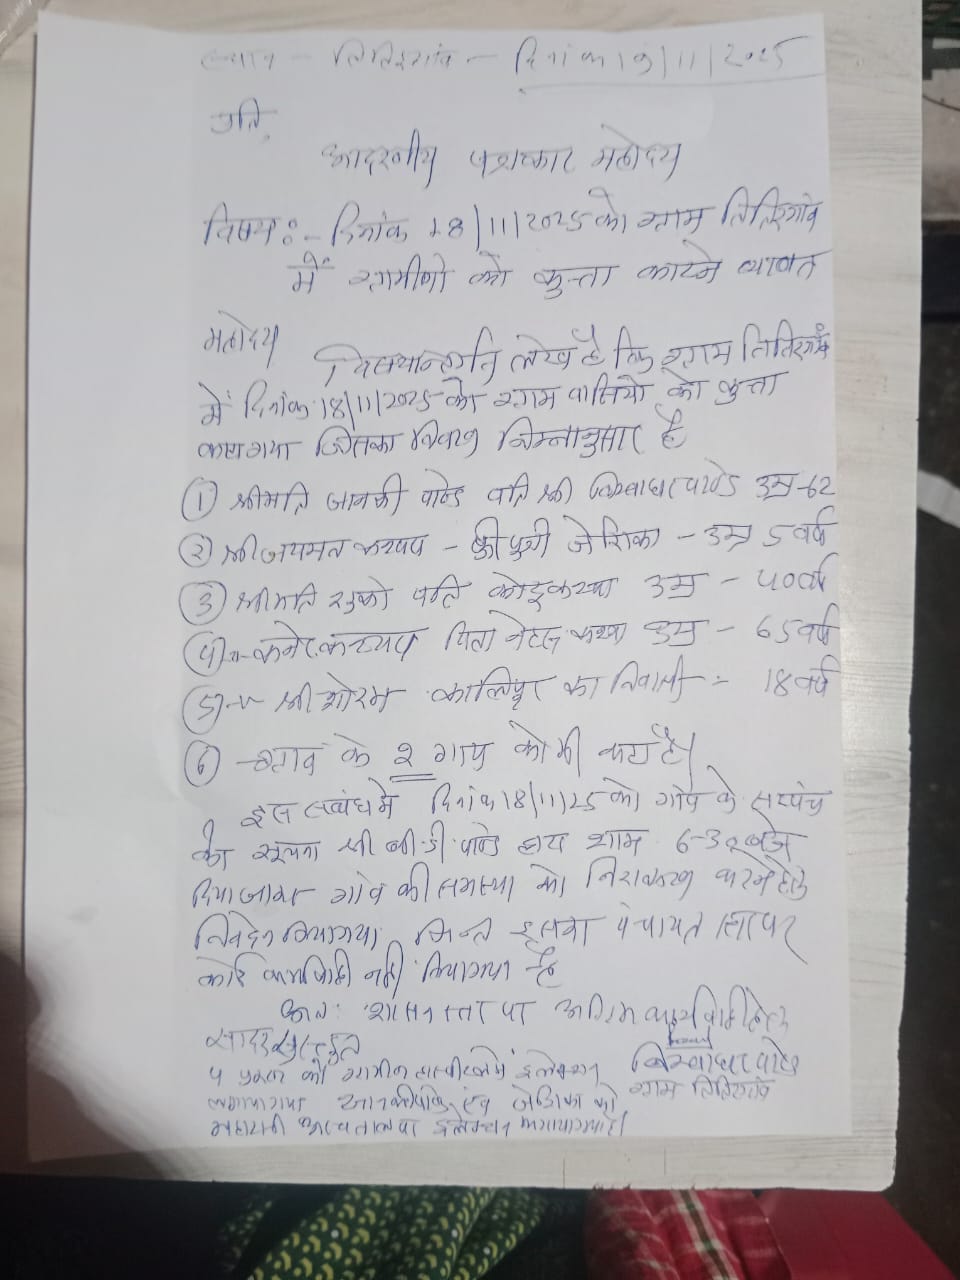 स्थान - तितिरगांव - दिनांक 19/11/2025
प्रति,
आदरणीय पत्रकार महोदय
विषय :- दिनांक 18/11/2025 को ग्राम तितिरगांव
में ग्रामीणो को कुत्ता काटने बाबत
महोदय
विषयान्तर्गत लेख है कि ग्राम तितिरगांव
में दिनांक 18/11/2025 को ग्राम वासियो को कुत्ता
काटा गया जिसका विवरण निम्नानुसार है
① श्रीमति जानकी पाण्डे पति श्री बिम्बाधर पाण्डे उम्र-62
② श्री जयमन कश्यप - की पुत्री जेशिका - उम्र 5 वर्ष
③ श्रीमति पति कश्यप उम्र - 40 वर्ष
④ कश्यप पिता कश्यप उम्र - 65 वर्ष
⑤ श्री कालिपुर का निवासी :- 18 वर्ष
⑥ ग्राम के 2 गाय को भी काटा है।
इस सबंध मे दिनांक 18/11/25 को गांव के सरपंच
को सूचना श्री बी.डी. पाण्डे द्वारा शाम 6-30 बजे
दिया जाकर गांव की समस्या का निराकरण करने हेतु
निवेदन किया गया किन्तु इसका पंचायत स्तर पर
कोई कार्यवाही नही किया गया है
अतः शासन स्तर पर अग्रिम कार्यवाही हेतु
सादर प्रस्तुत
बिम्बाधर पाण्डे
ग्राम तितिरगांव
को ग्रामीण इंजेक्शन
लगाया गया जानकी पाण्डे एवं जेशिका को
महारानी अस्पताल पर इंजेक्शन लगाया गया है।